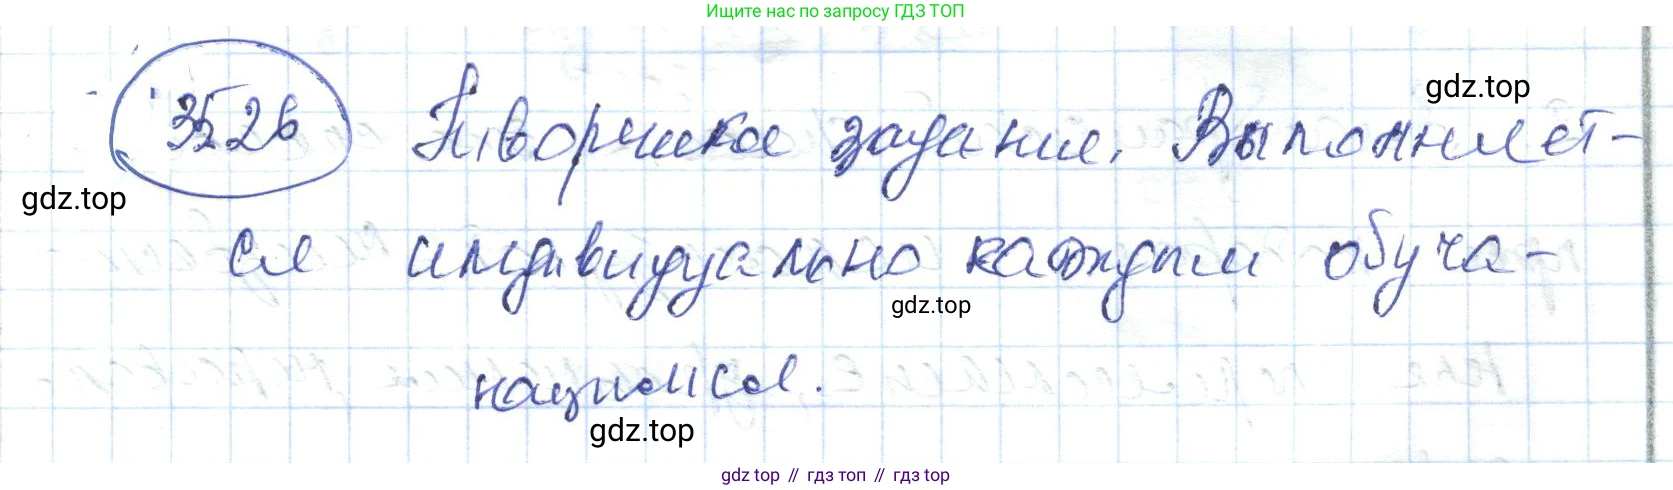 Ищите нас по запросу ГДЗ ТОП
3526 Творческое задание. Выполняет-
gdz.top
gdz.top
ся индивидуально каждым обуча-
gdz.top
ющимся.
gdz.top
gdz top // гдз топ // гдз top